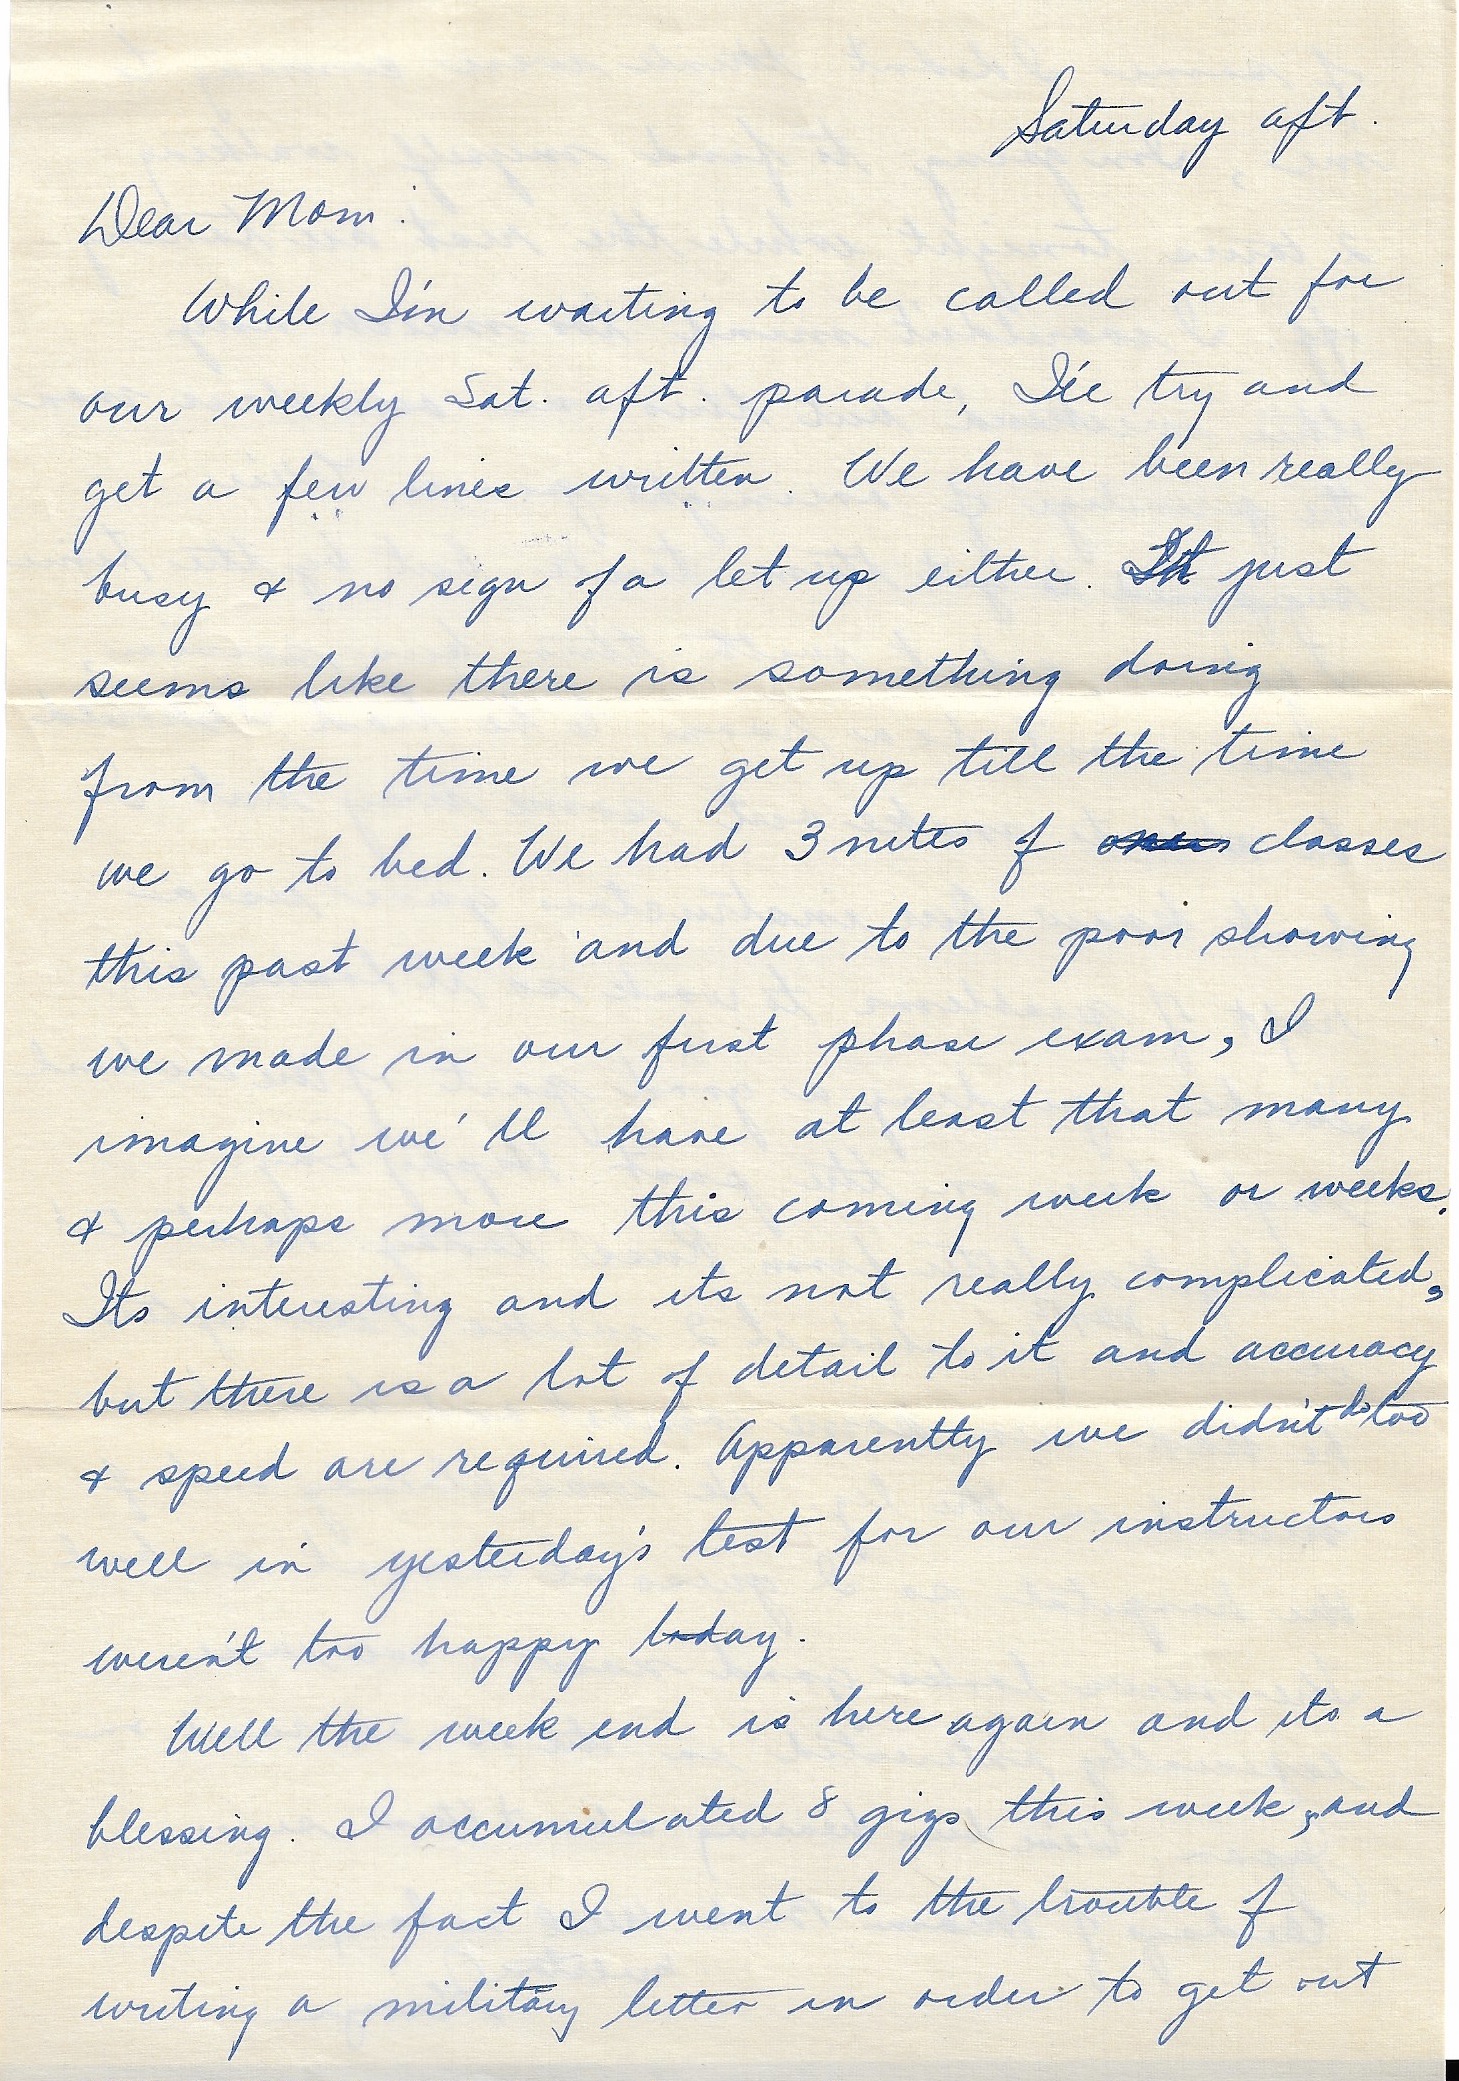 Saturday aft.
Dear Mom:
While I'm waiting to be called out for
our weekly Sat. aft. parade, I'll try and
get a few lines written. We have been really
busy & no sign of a let up either. It just
seems like there is something doing
from the time we get up till the time
we go to bed. We had 3 nites of classes
this past week and due to the poor showing
we made in our first phase exam, I
imagine we'll have at least that many
& perhaps more this coming week or weeks.
Its interesting and its not really complicated,
but there is a lot of detail to it and accuracy
& speed are required. Apparently we didn't do too
well in yesterday's test for our instructors
weren't too happy today.
Well the week end is here again and its a
blessing. I accumulated 8 gigs this week, and
despite the fact I went to the trouble of
writing a military letter in order to get out